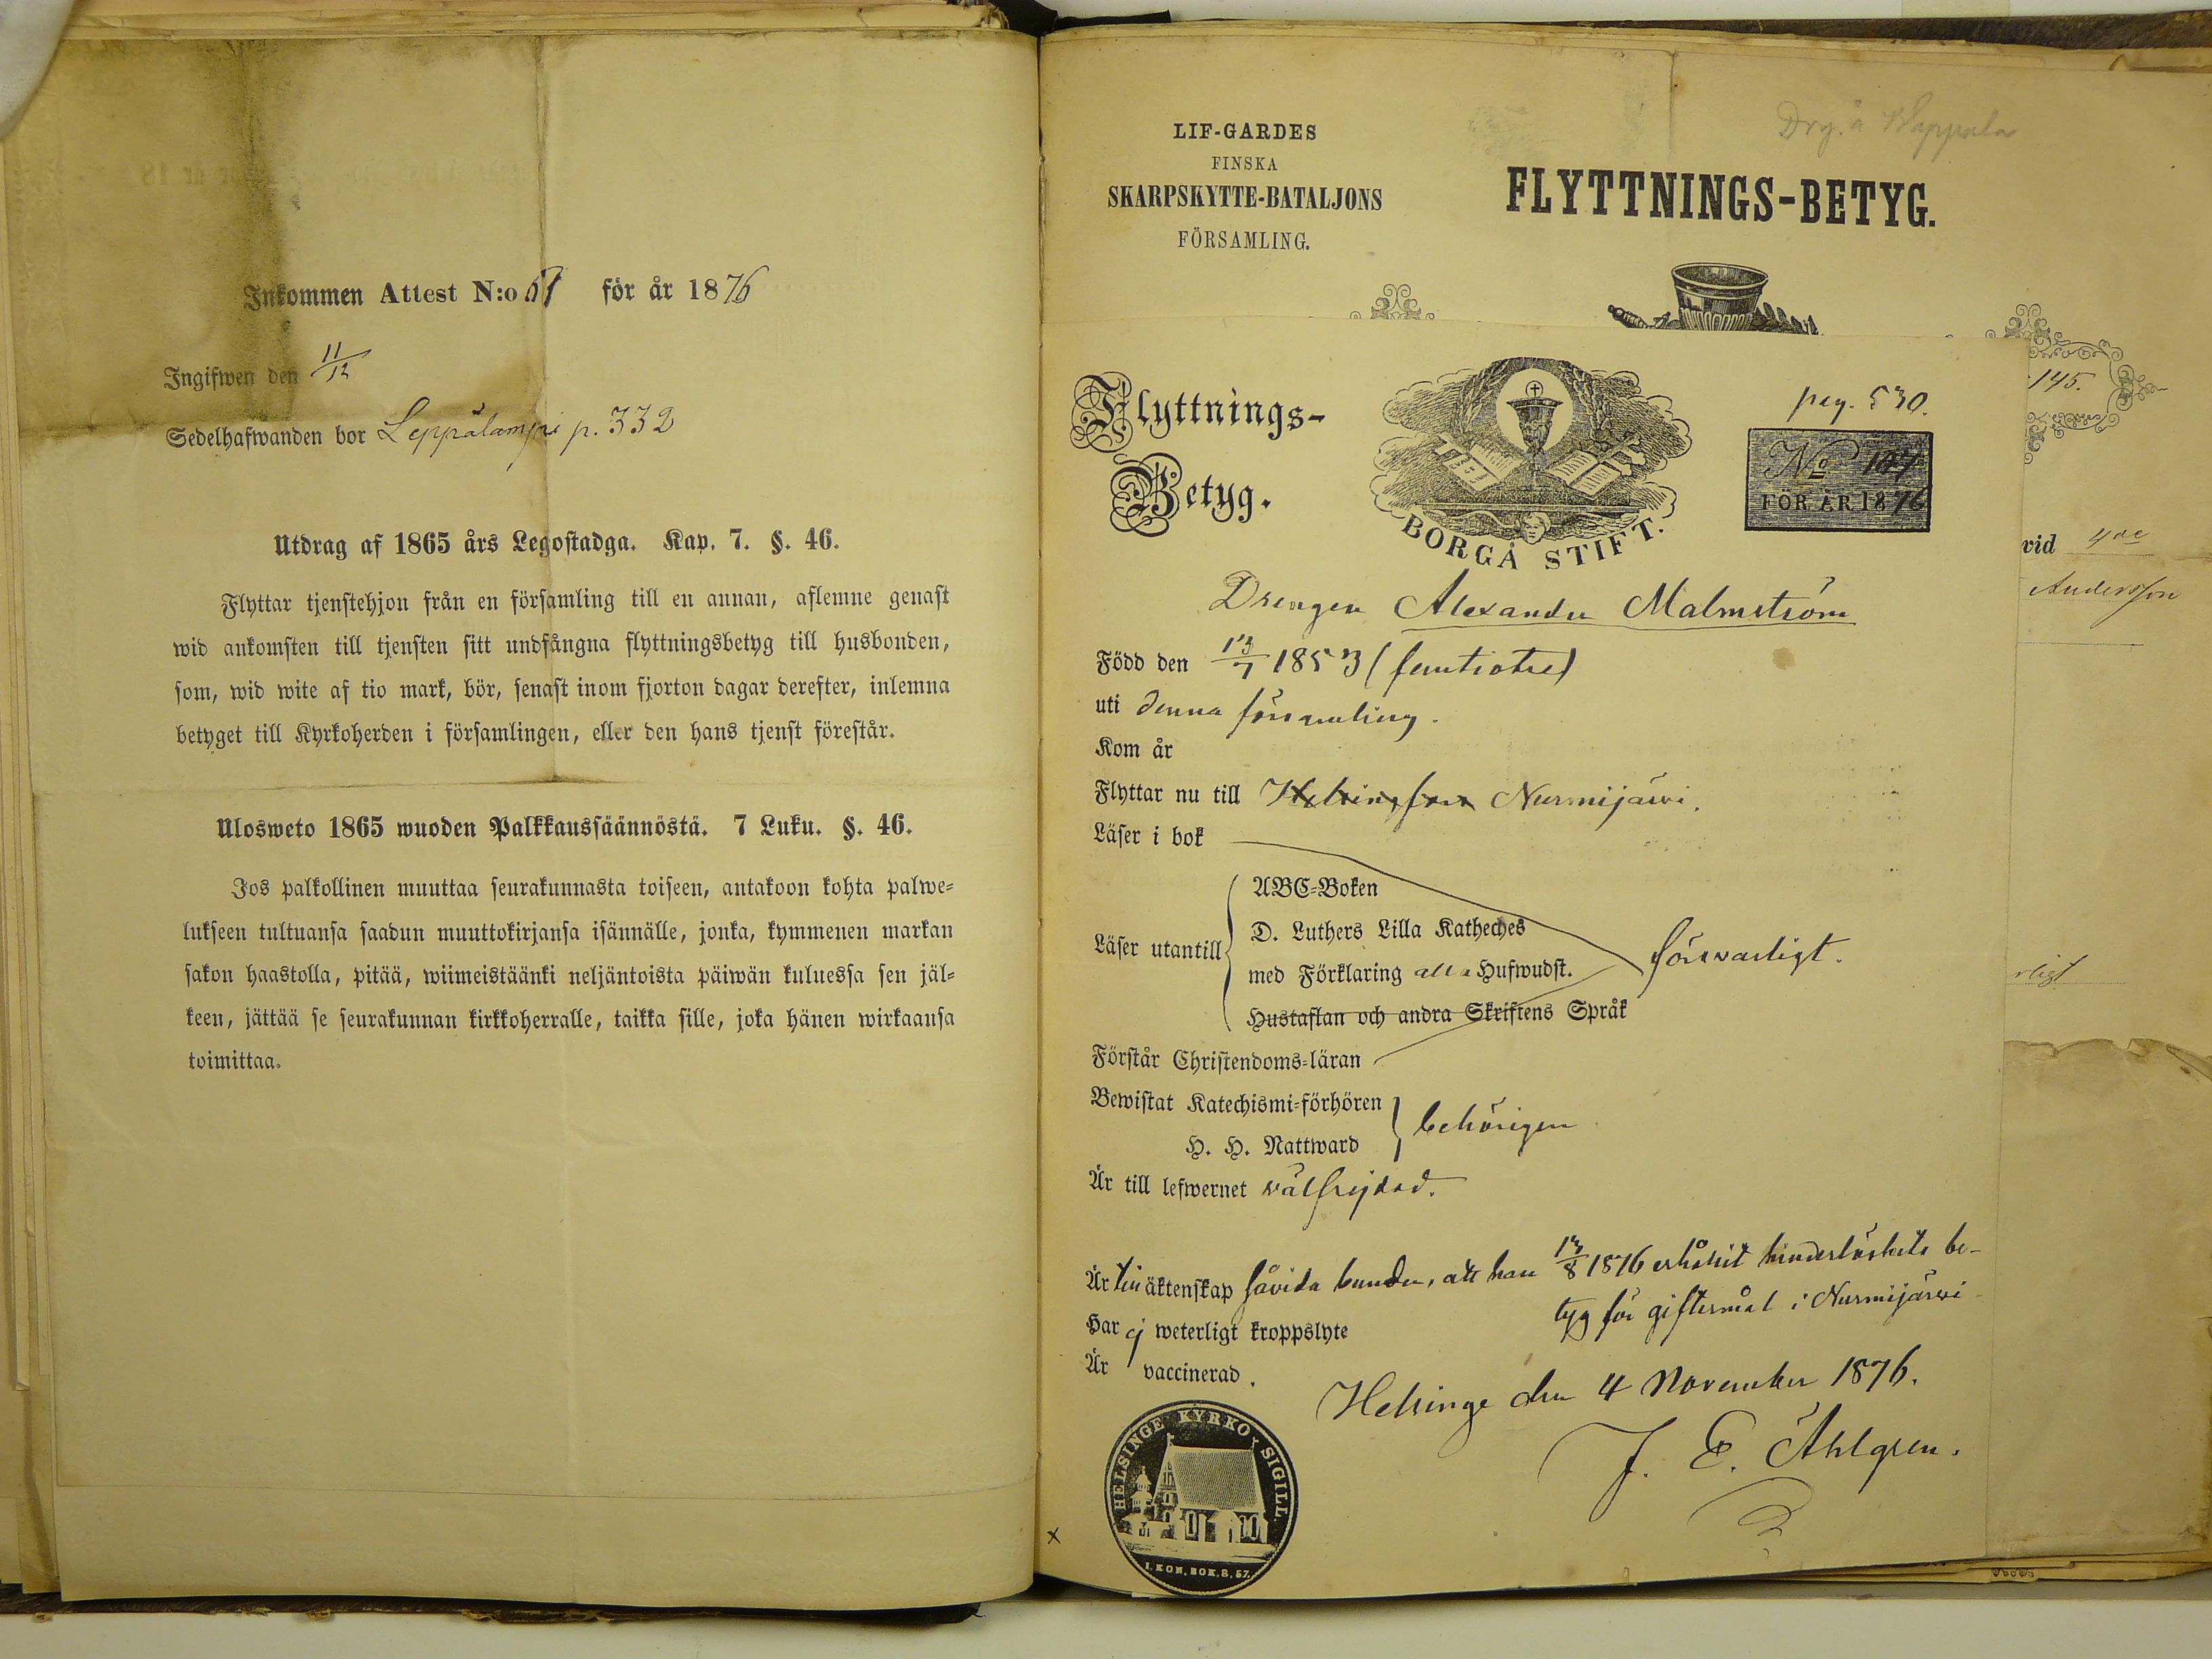 Inkommen Attest N:o 61 för år 1876
Ingifwen den 11/12
Sedelhafwanden bor Leppälampi p. 332
Utdrag af 1865 års Legostadga. Kap. 7. §. 46.
Flyttar tjenstehjon från en församling till en annan, aflemne genast
wid ankomsten till tjensten sitt undfångna flyttningsbetyg till husbonden,
som, wid wite af tio mark, bör, senast inom fjorton dagar derefter, inlemna
betyget till Kyrkoherden i församlingen, eller den hans tjenst förestår.
Ulosweto 1865 wuoden Palkkaussäännöstä. 7 Luku. §. 46.
Jos palkollinen muuttaa seurakunnasta toiseen, antakoon kohta palwe-
lukseen tultuansa saadun muuttokirjansa isännälle, jonka, kymmenen markan
sakon haastolla, pitää, wiimeistäänki neljäntoista päiwän kuluessa sen jäl-
keen, jättää se seurakunnan kirkkoherralle, taikka sille, joka hänen wirkaansa
toimittaa.
Drg. å Kappala
LIF-GARDES
FINSKA
SKARPSKYTTE-BATALJONS
FÖRSAMLING.
FLYTTNINGS-BETYG.
145.
vid 4de
Andersson
rligt
Flyttnings-
Betyg.
BORGÅ STIFT.
pag. 530.
No 147
FÖR ÅR 1876
Drengen Alexander Malmström
Född den 13/7 1853 (femtiotre)
uti denna församling.
Kom år
Flyttar nu till Helsingfors Nurmijärvi.
Läser i bok
Läser utantill
ABC-Boken
D. Luthers Lilla Katheches
med Förklaring alla Hufwudst.
Hustaflan och andra Skriftens Språk
försvarligt.
Förstår Christendoms-läran
Bewistat Katechismi-förhören
H. H. Nattward
behörigen
Är till lefwernet välfrejdad.
Är till äktenskap såvida bunden, att han 13/8 1876 erhållit hinderlöshets be-
tyg för giftermål i Nurmijärvi
Har ej weterligt kroppslyte
Är vaccinerad.
Helsinge den 4 November 1876.
J. E. Åhlgren.
HELSINGE KYRKO SIGILL.
1. KON. BOK. 8, 57.
x